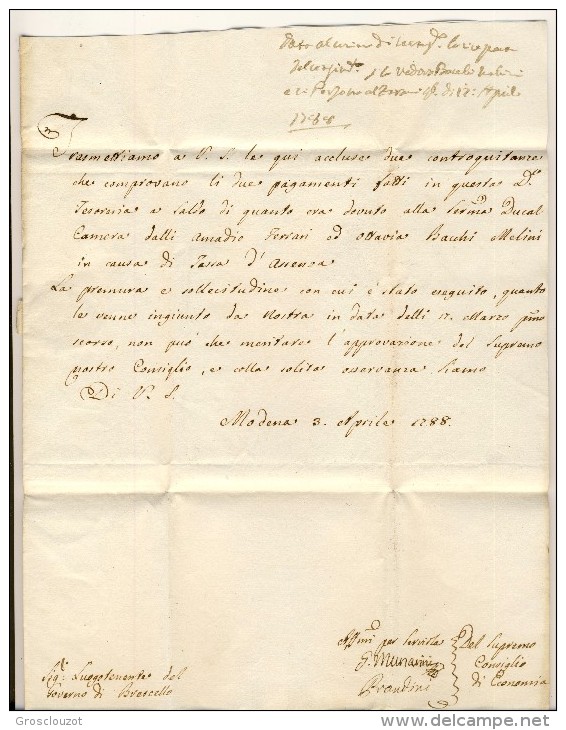 1788
Trasmettiamo a V. S. le qui accluse due controquitanze
che comprovano li due pagamenti fatti in questa D.
Tesoreria a saldo di quanto era dovuto alla Serma Ducal
Camera dalli Amadio Ferrari ed Ottavia Bacchi Melini
in causa di Tassa d'Assenza
La premura e sollecitudine con cui è stato eseguito quanto
le venne ingiunto da Nostra in data delli 17. Marzo pmo
scorso, non può che meritare l'approvazione del Supremo
nostro Consiglio, e colla solita osservanza siamo
Di V. S.
Modena 3. Aprile 1788.
Affmi per Servirla
G. Munarini
Brandini
Del Supremo
Consiglio
di Economia
Sigr Luogotenente del
Governo di Brescello
Grosclouzot
delcampe.net